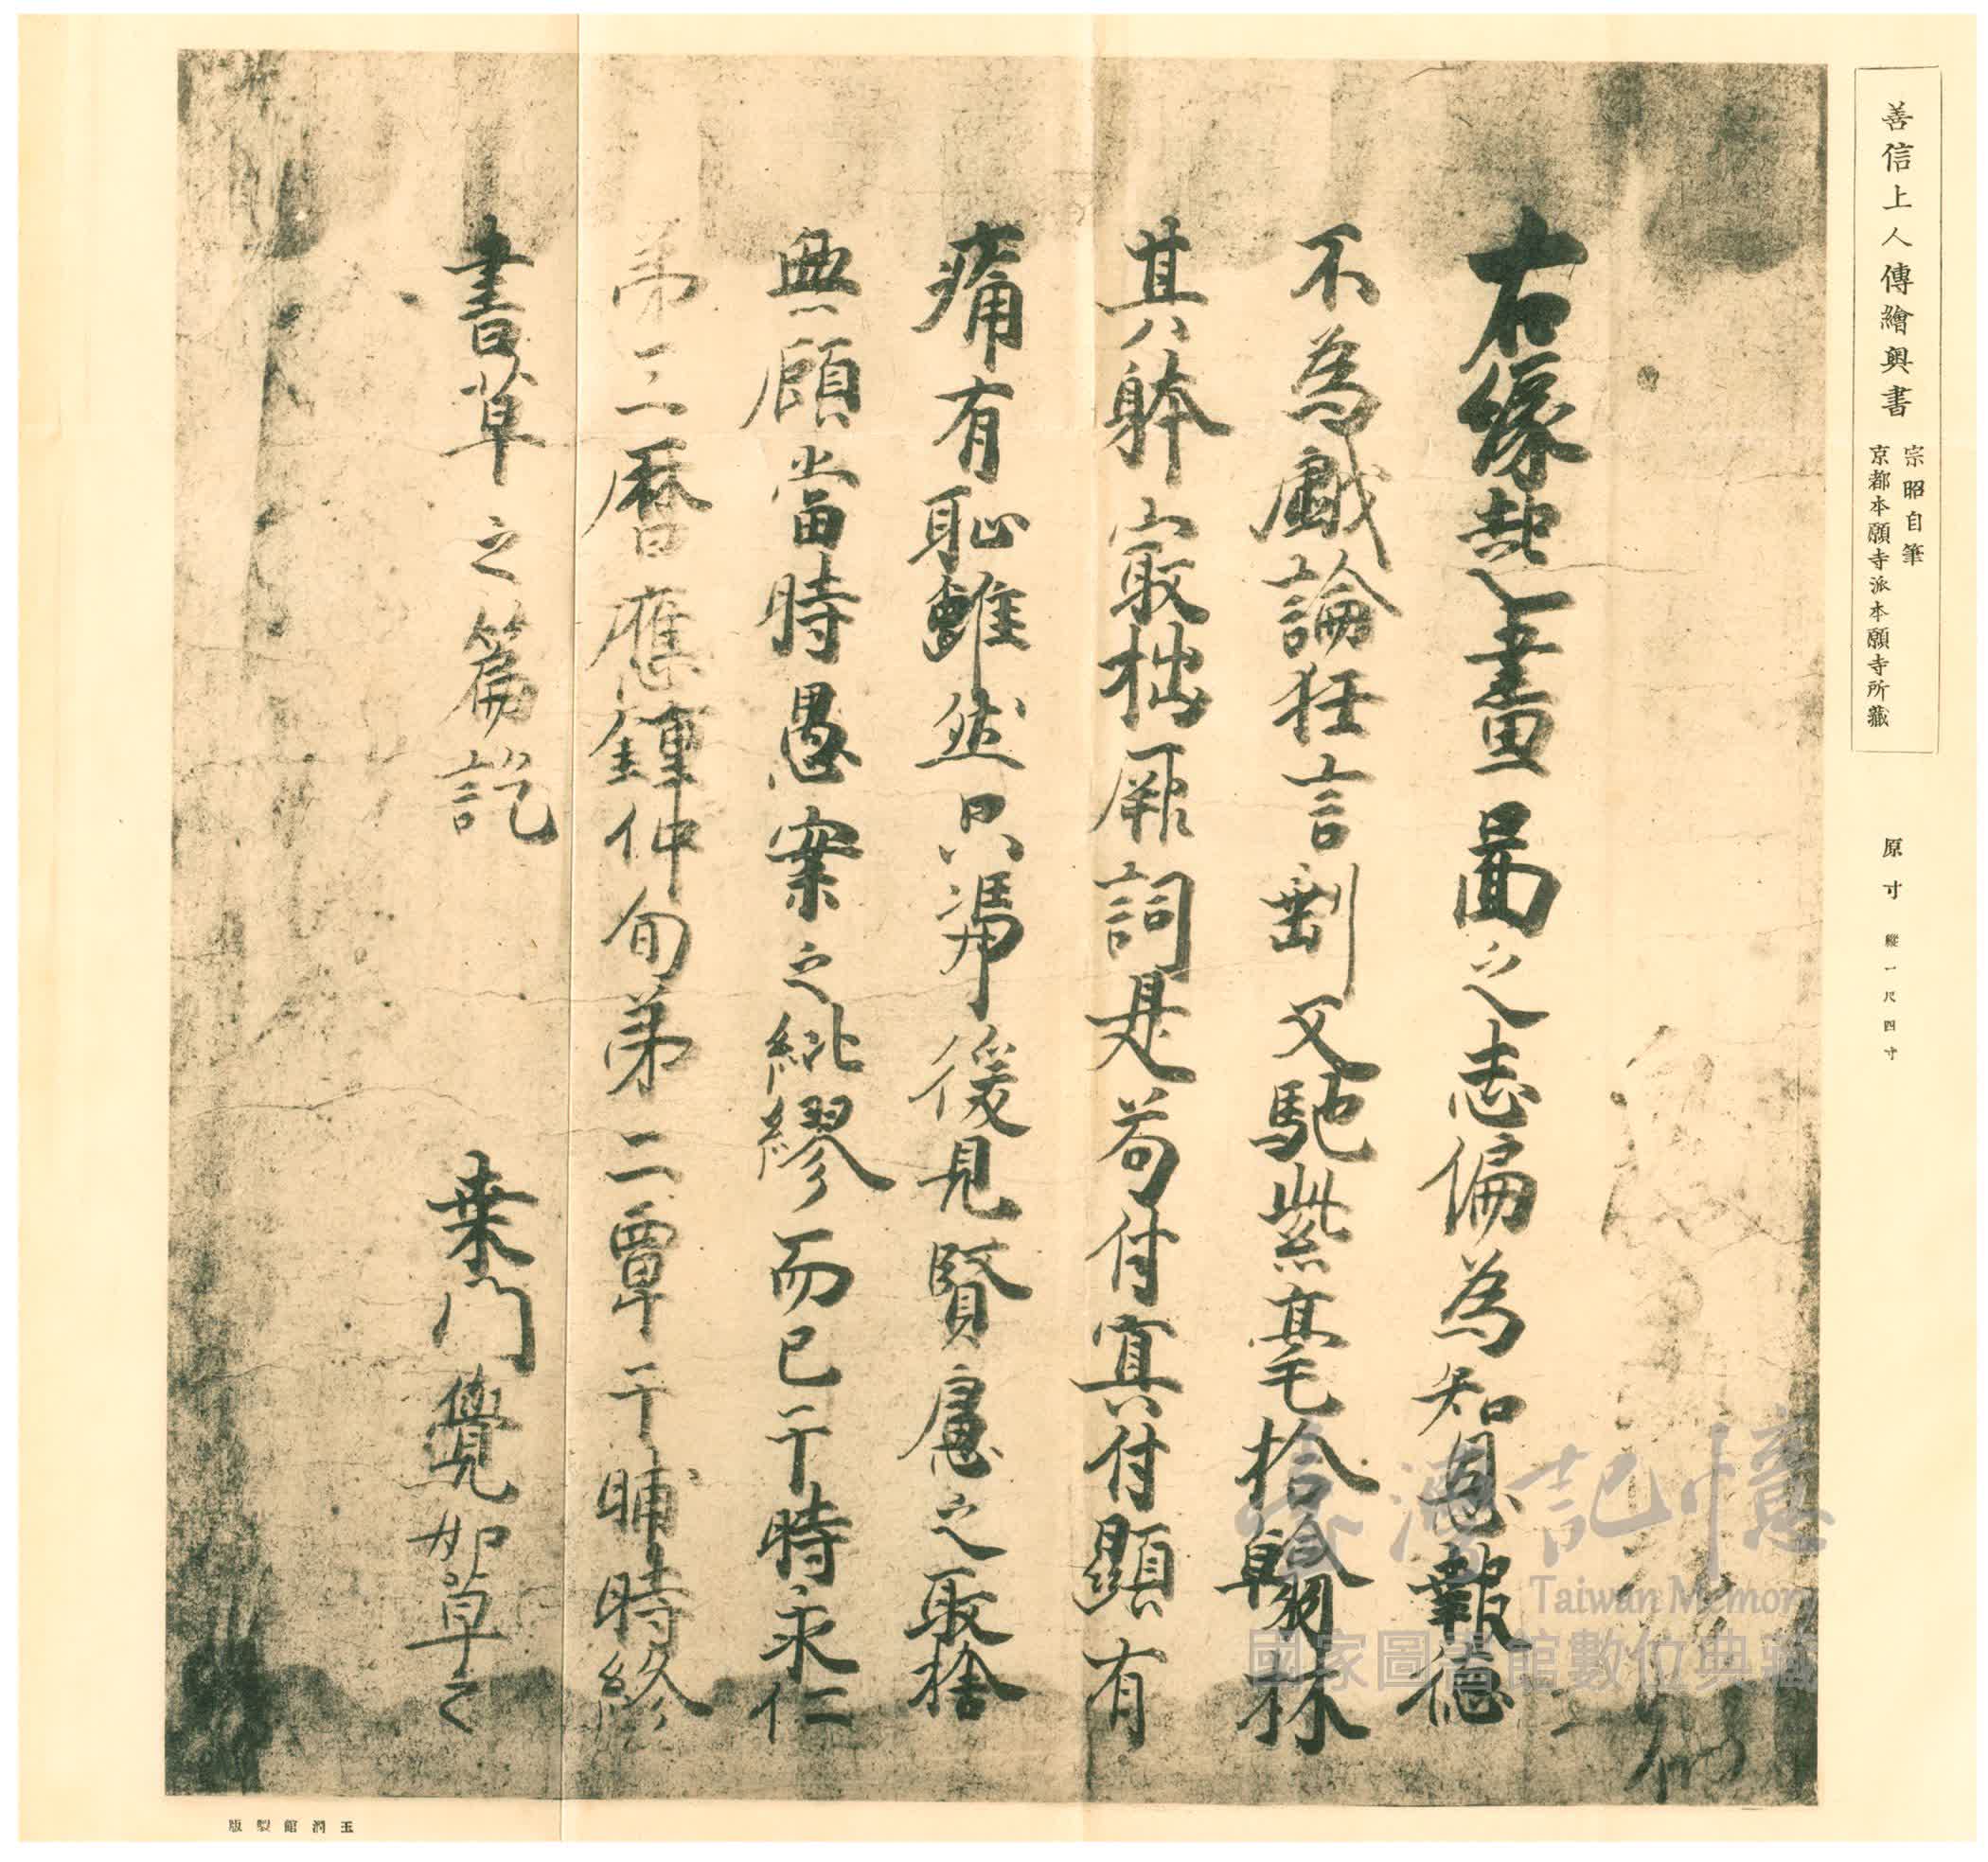 善信上人傳繪奥書
宗昭自筆
京都本願寺派本願寺所藏
原寸 縱一尺四寸
右緣起畫圖之志偏為知恩報德
不為戯論狂言剰又馳紫毫拾翰林
其躰寂拙厥詞是苟付冥付顯有
痛有耻雖然只馮後見賢慮之取捨
無顧當時愚案之紕繆而已于時永仁
第三曆應鍾仲旬第二覃于晡時終
書草之篇訖
桒門覺如草之
玉潤館製版
臺灣記憶
Taiwan Memory
國家圖書館數位典藏